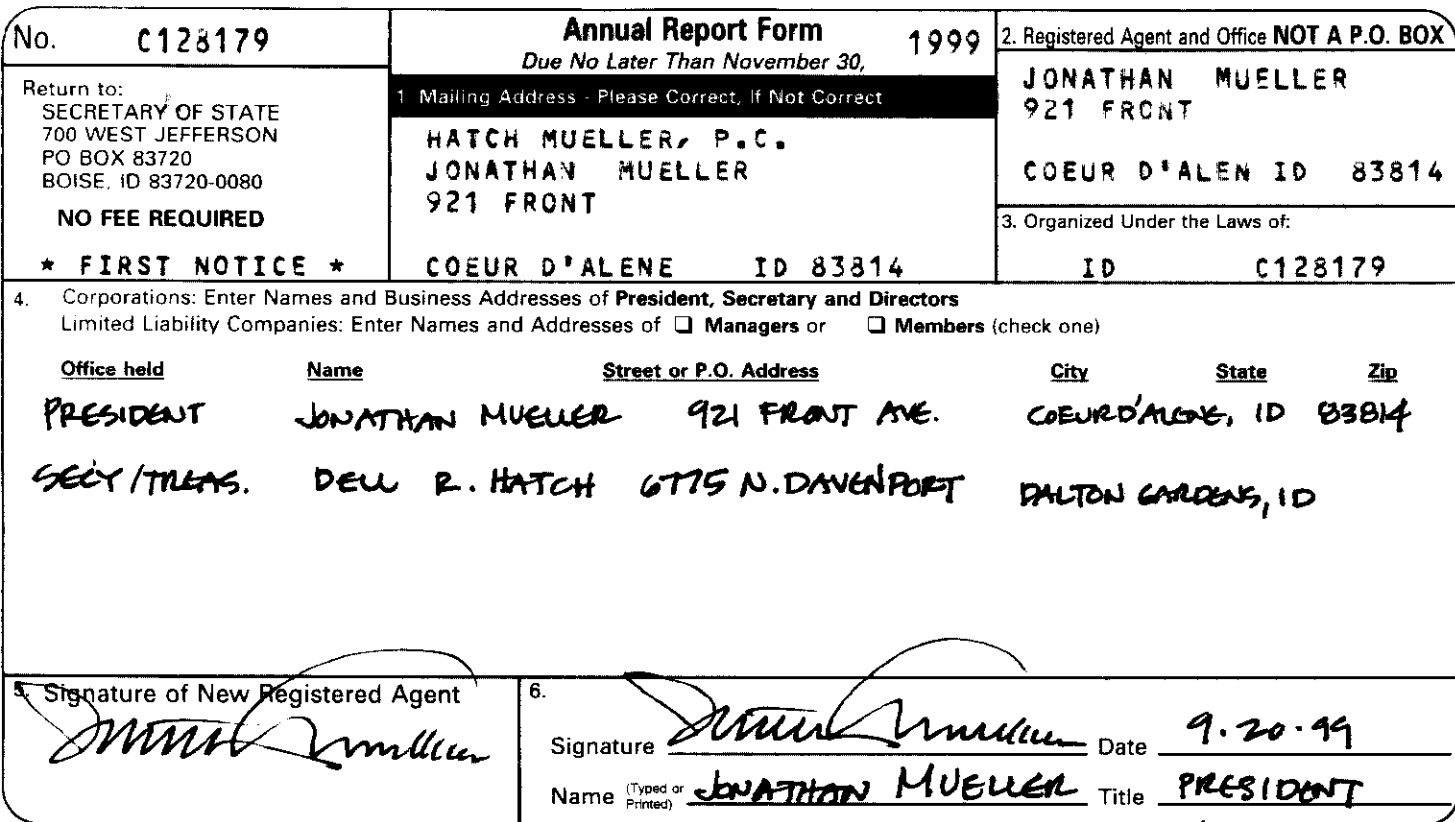 No. C128179
Return to:
SECRETARY OF STATE
700 WEST JEFFERSON
PO BOX 83720
BOISE, ID 83720-0080
NO FEE REQUIRED
* FIRST NOTICE *
Annual Report Form 1999
Due No Later Than November 30,
1 Mailing Address - Please Correct, If Not Correct
HATCH MUELLER, P.C.
JONATHAN MUELLER
921 FRONT
COEUR D'ALENE ID 83814
2. Registered Agent and Office NOT A P.O. BOX
JONATHAN MUELLER
921 FRONT
COEUR D'ALEN ID 83814
3. Organized Under the Laws of:
ID C128179
4. Corporations: Enter Names and Business Addresses of President, Secretary and Directors
Limited Liability Companies: Enter Names and Addresses of ☐ Managers or ☐ Members (check one)
Office held Name Street or P.O. Address City State Zip
PRESIDENT JONATHAN MUELLER 921 FRONT AVE. COEUR D'ALENE, ID 83814
SEC'Y/TREAS. DELL R. HATCH 6775 N. DAVENPORT DALTON GARDENS, ID
5. Signature of New Registered Agent
6.
Signature Date 9.20.99
Name (Typed or Printed) JONATHAN MUELLER Title PRESIDENT